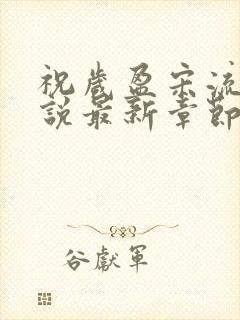 祝歲盈宋流
說最新章節
谷獻軍